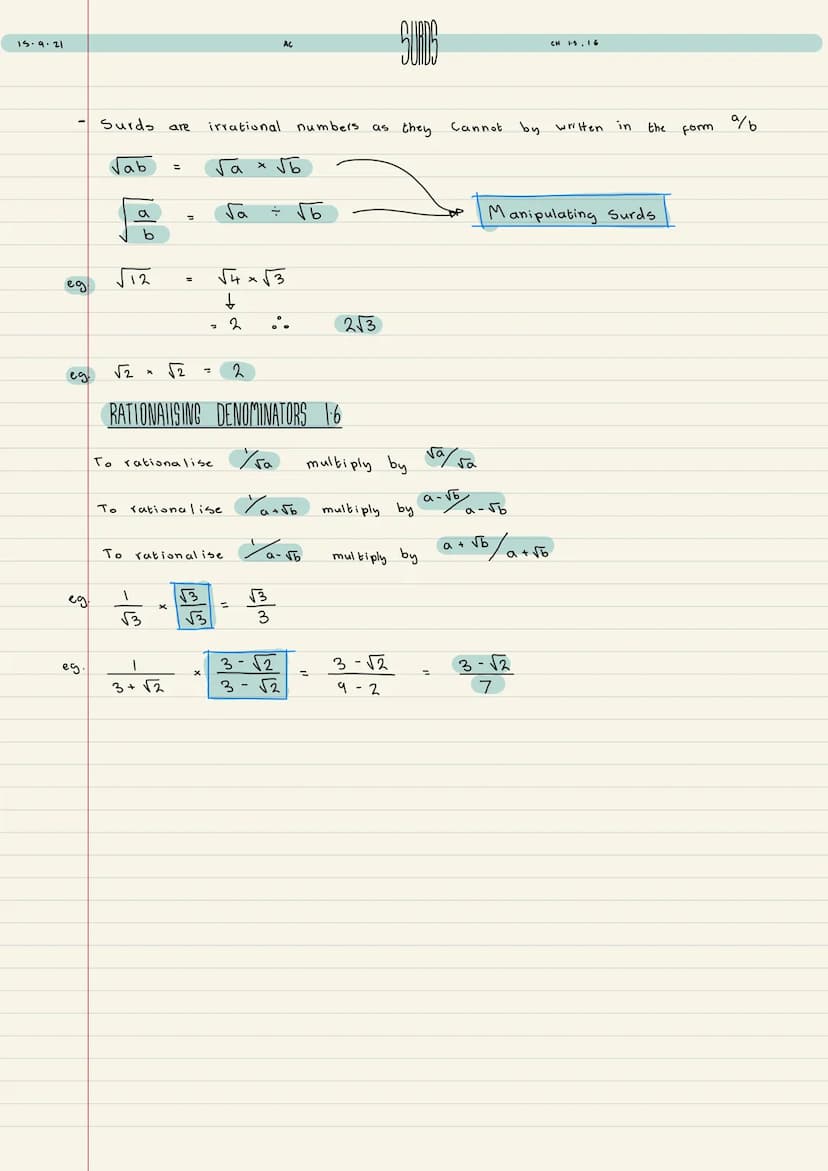 SURDS
15.9.21 AC CH 1.5, 1.6
- Surds are irrational numbers as they cannot by written in the form a/b
√ab = √a × √b
√a/b = √a ÷ √b Manipulating Surds
eg. √12 = √4 × √3
↓
= 2 ∴ 2√3
eg. √2 × √2 = 2
RATIONALISING DENOMINATORS 1.6
To rationalise 1/√a multiply by √a/√a
To rationalise 1/a+√b multiply by a-√b/a-√b
To rationalise 1/a-√b multiply by a+√b/a+√b
eg. 1/√3 × √3/√3 = √3/3
eg. 1/3+√2 × 3-√2/3-√2 = 3-√2/9-2 = 3-√2/7